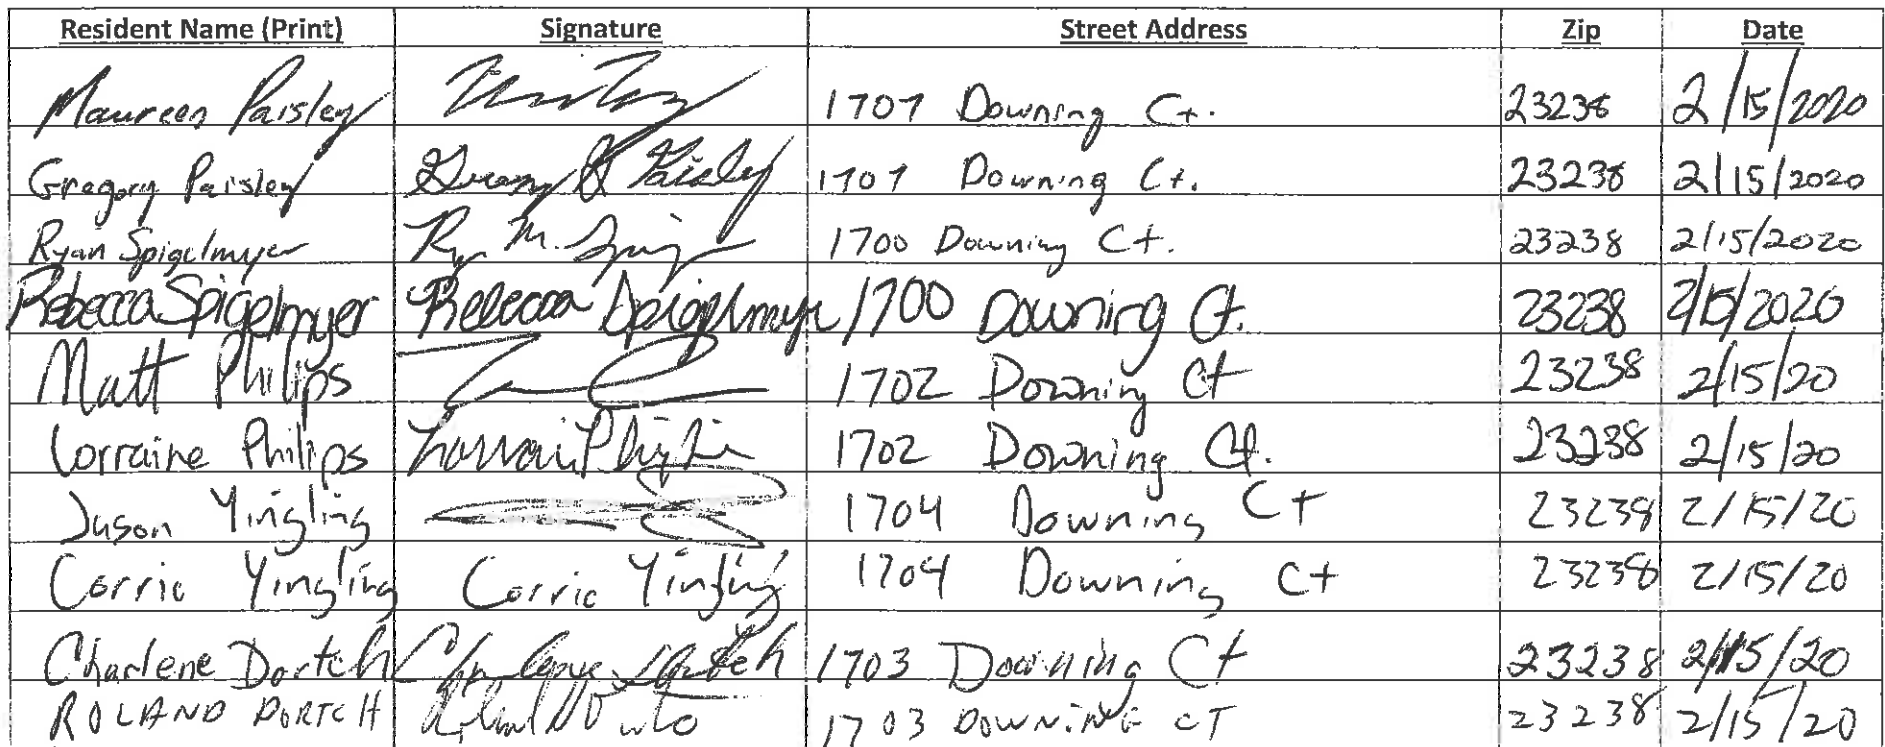 Resident Name (Print) Signature Street Address Zip Date
Maureen Paisley 1707 Downing Ct. 23238 2/15/2020
Gregory Paisley Gregory Paisley 1707 Downing Ct. 23238 2/15/2020
Ryan Spigelmyer Ry M. 1700 Downing Ct. 23238 2/15/2020
Rebecca Spigelmyer Rebecca Spigelmyer 1700 Downing Ct. 23238 2/15/2020
Matt Philips 1702 Downing Ct 23238 2/15/20
Lorraine Philips Lorraine Philips 1702 Downing Ct. 23238 2/15/20
Jason Yingling 1704 Downing Ct 23238 2/15/20
Corrie Yingling Corrie Yingling 1704 Downing Ct 23238 2/15/20
Charlene Dortch Charlene Dortch 1703 Downing Ct 23238 2/15/20
ROLAND DORTCH 1703 DOWNING CT 23238 2/15/20